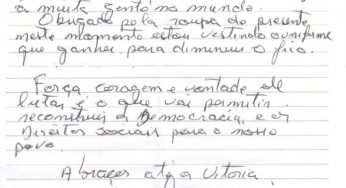 a muita gente no mundo.
Obrigado pela roupa de presente
neste momento estou vestindo o uniforme
que ganhei para diminuir o frio.
Força, coragem e vontade de
lutar é o que vai permitir
reconstruir a Democracia e os
Direitos sociais para o nosso
povo.
Abraços até a Vitória